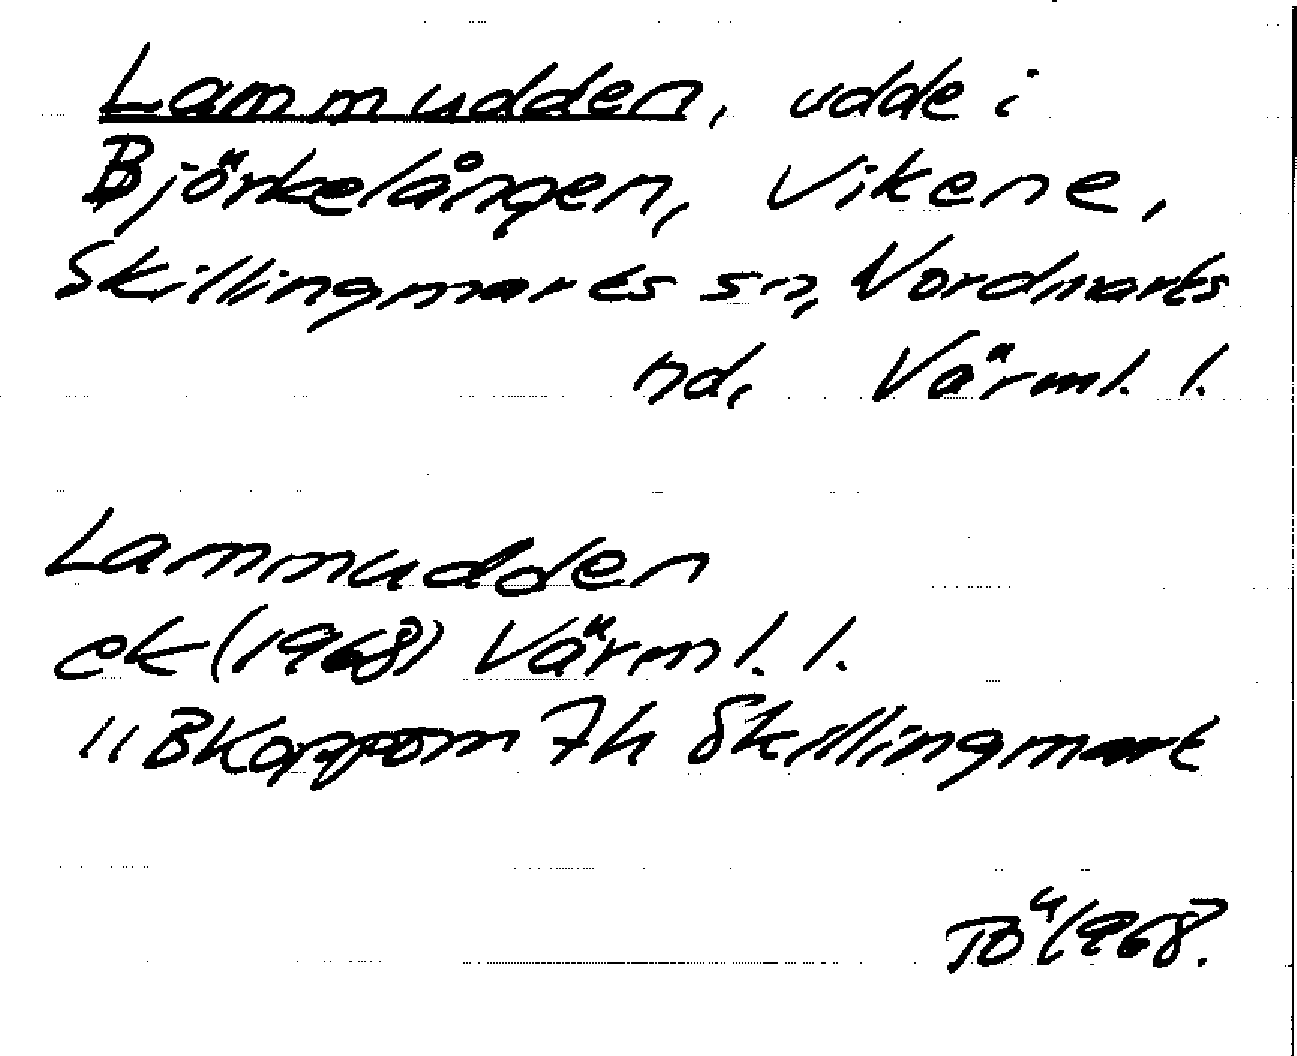 Lammudden, udde i
Björkelången, Vikene,
Skillingmarks sn, Nordmarks
hd, Värml. l.
Lammudden
ek (1968) Värml. l.
" BKoppom 7h Skillingmark
TÖ 1968.